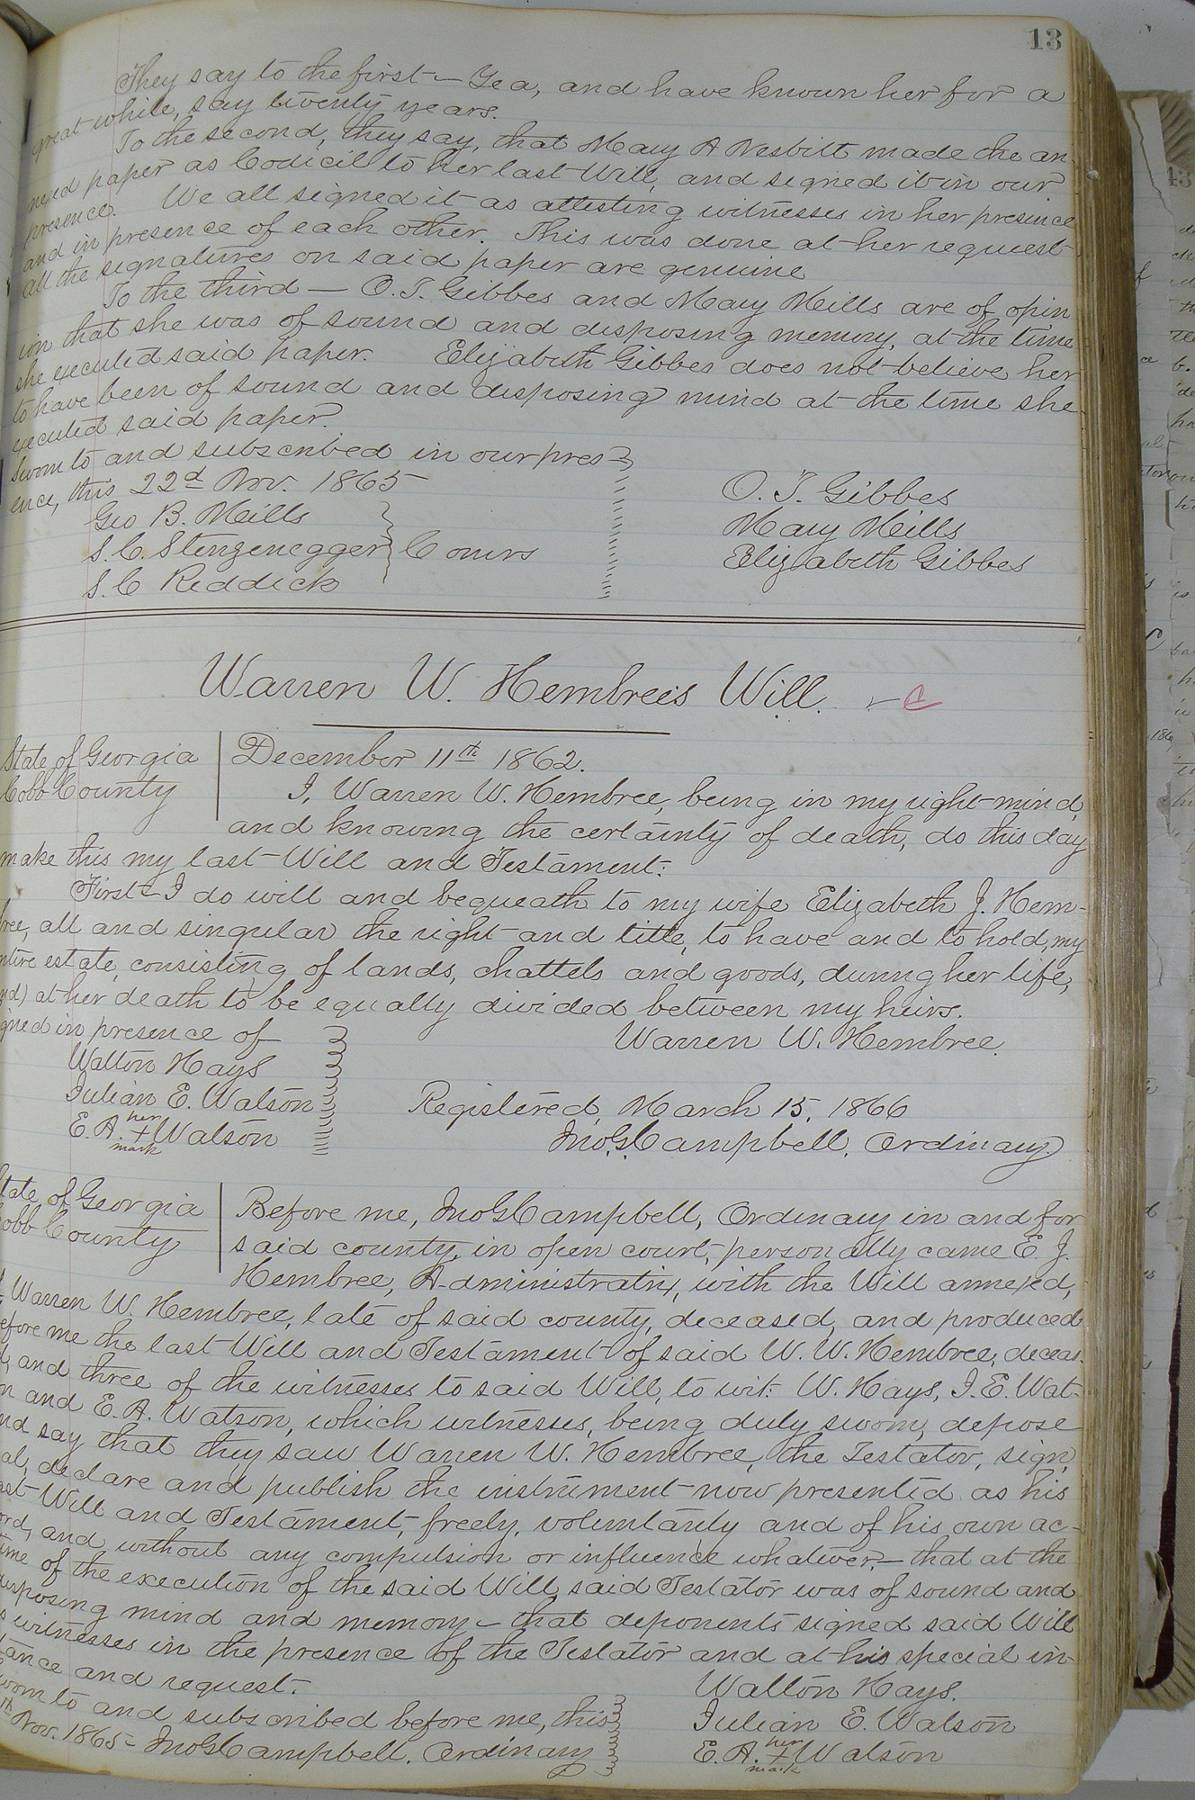 13
They say to the first — Yea, and have known her for a
great while, say twenty years.
To the second, they say, that Mary A Nesbitt made the an
nexed paper as Codicil to her last Will, and signed it in our
presence. We all signed it as attesting witnesses in her presence
and in presence of each other. This was done at her request
all the signatures on said paper are genuine
To the third — O. T. Gibbes and Mary Mills are of opin
ion that she was of sound and disposing memory, at the time
she executed said paper. Elizabeth Gibbes does not believe her
to have been of sound and disposing mind at the time she
executed said paper.
Sworn to and subscribed in our pres
ence, this 22d Nov. 1865
Geo B. Mills
S. C. Stengenegger Comrs
S. C Reddick
O. T. Gibbes
Mary Mills
Elizabeth Gibbes
Warren W. Hembree's Will.
State of Georgia
Cobb County
December 11th 1862.
I, Warren W. Hembree, being in my right mind,
and knowing the certainty of death, do this day
make this my last Will and Testament:
First I do will and bequeath to my wife Elizabeth J. Hem-
bree, all and singular the right and title, to have and to hold, my
ntire estate, consisting of lands, chattels and goods, during her life,
nd) at her death to be equally divided between my heirs.
gned in presence of
Warren W. Hembree.
Walton Hays
Julian E. Watson
E. A. her + mark Watson
Registered, March 15, 1866
Jno. G. Campbell, Ordinary.
State of Georgia
Cobb County
Before me, Jno G Campbell, Ordinary in and for
said county, in open court, personally came E. J.
Hembree, Administratrix, with the Will annexed,
f Warren W. Hembree, late of said county, deceased, and produced
efore me the last Will and Testament of said W. W. Hembree, deceas-
d, and three of the witnesses to said Will, to wit: W. Hays, J. E. Wat-
on and E. A. Watson, which witnesses, being duly sworn, depose
nd say that they saw Warren W. Hembree, the Testator, sign,
al, declare and publish the instrument now presented as his
ast Will and Testament, freely, voluntarily and of his own ac-
ord, and without any compulsion or influence whatever, — that at the
ime of the execution of the said Will, said Testator was of sound and
disposing mind and memory — that deponents signed said Will
s witnesses in the presence of the Testator and at his special in-
tance and request.
worn to and subscribed before me, this
th Nov. 1865 — Jno G Campbell, Ordinary
Walton Hays.
Julian E. Watson
E. A. her + mark Watson